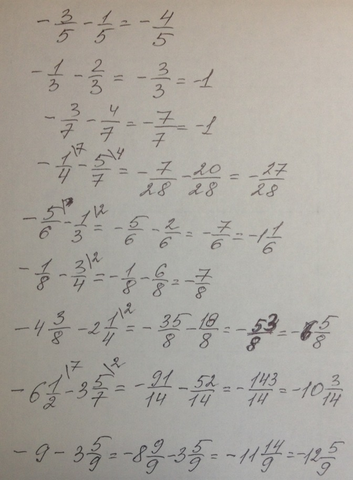 -3/5 - 1/5 = -4/5
-1/3 - 2/3 = -3/3 = -1
-3/7 - 4/7 = -7/7 = -1
-1\7/4 - 5\4/7 = -7/28 - 20/28 = -27/28
-5/6 - 1\2/3 = -5/6 - 2/6 = -7/6 = -1 1/6
-1/8 - 3\2/4 = -1/8 - 6/8 = -7/8
-4 3/8 - 2 1\2/4 = -35/8 - 18/8 = -53/8 = 6 5/8
-6 1\7/2 - 3 5\2/7 = -91/14 - 52/14 = -143/14 = -10 3/14
-9 - 3 5/9 = -8 9/9 - 3 5/9 = -11 14/9 = -12 5/9